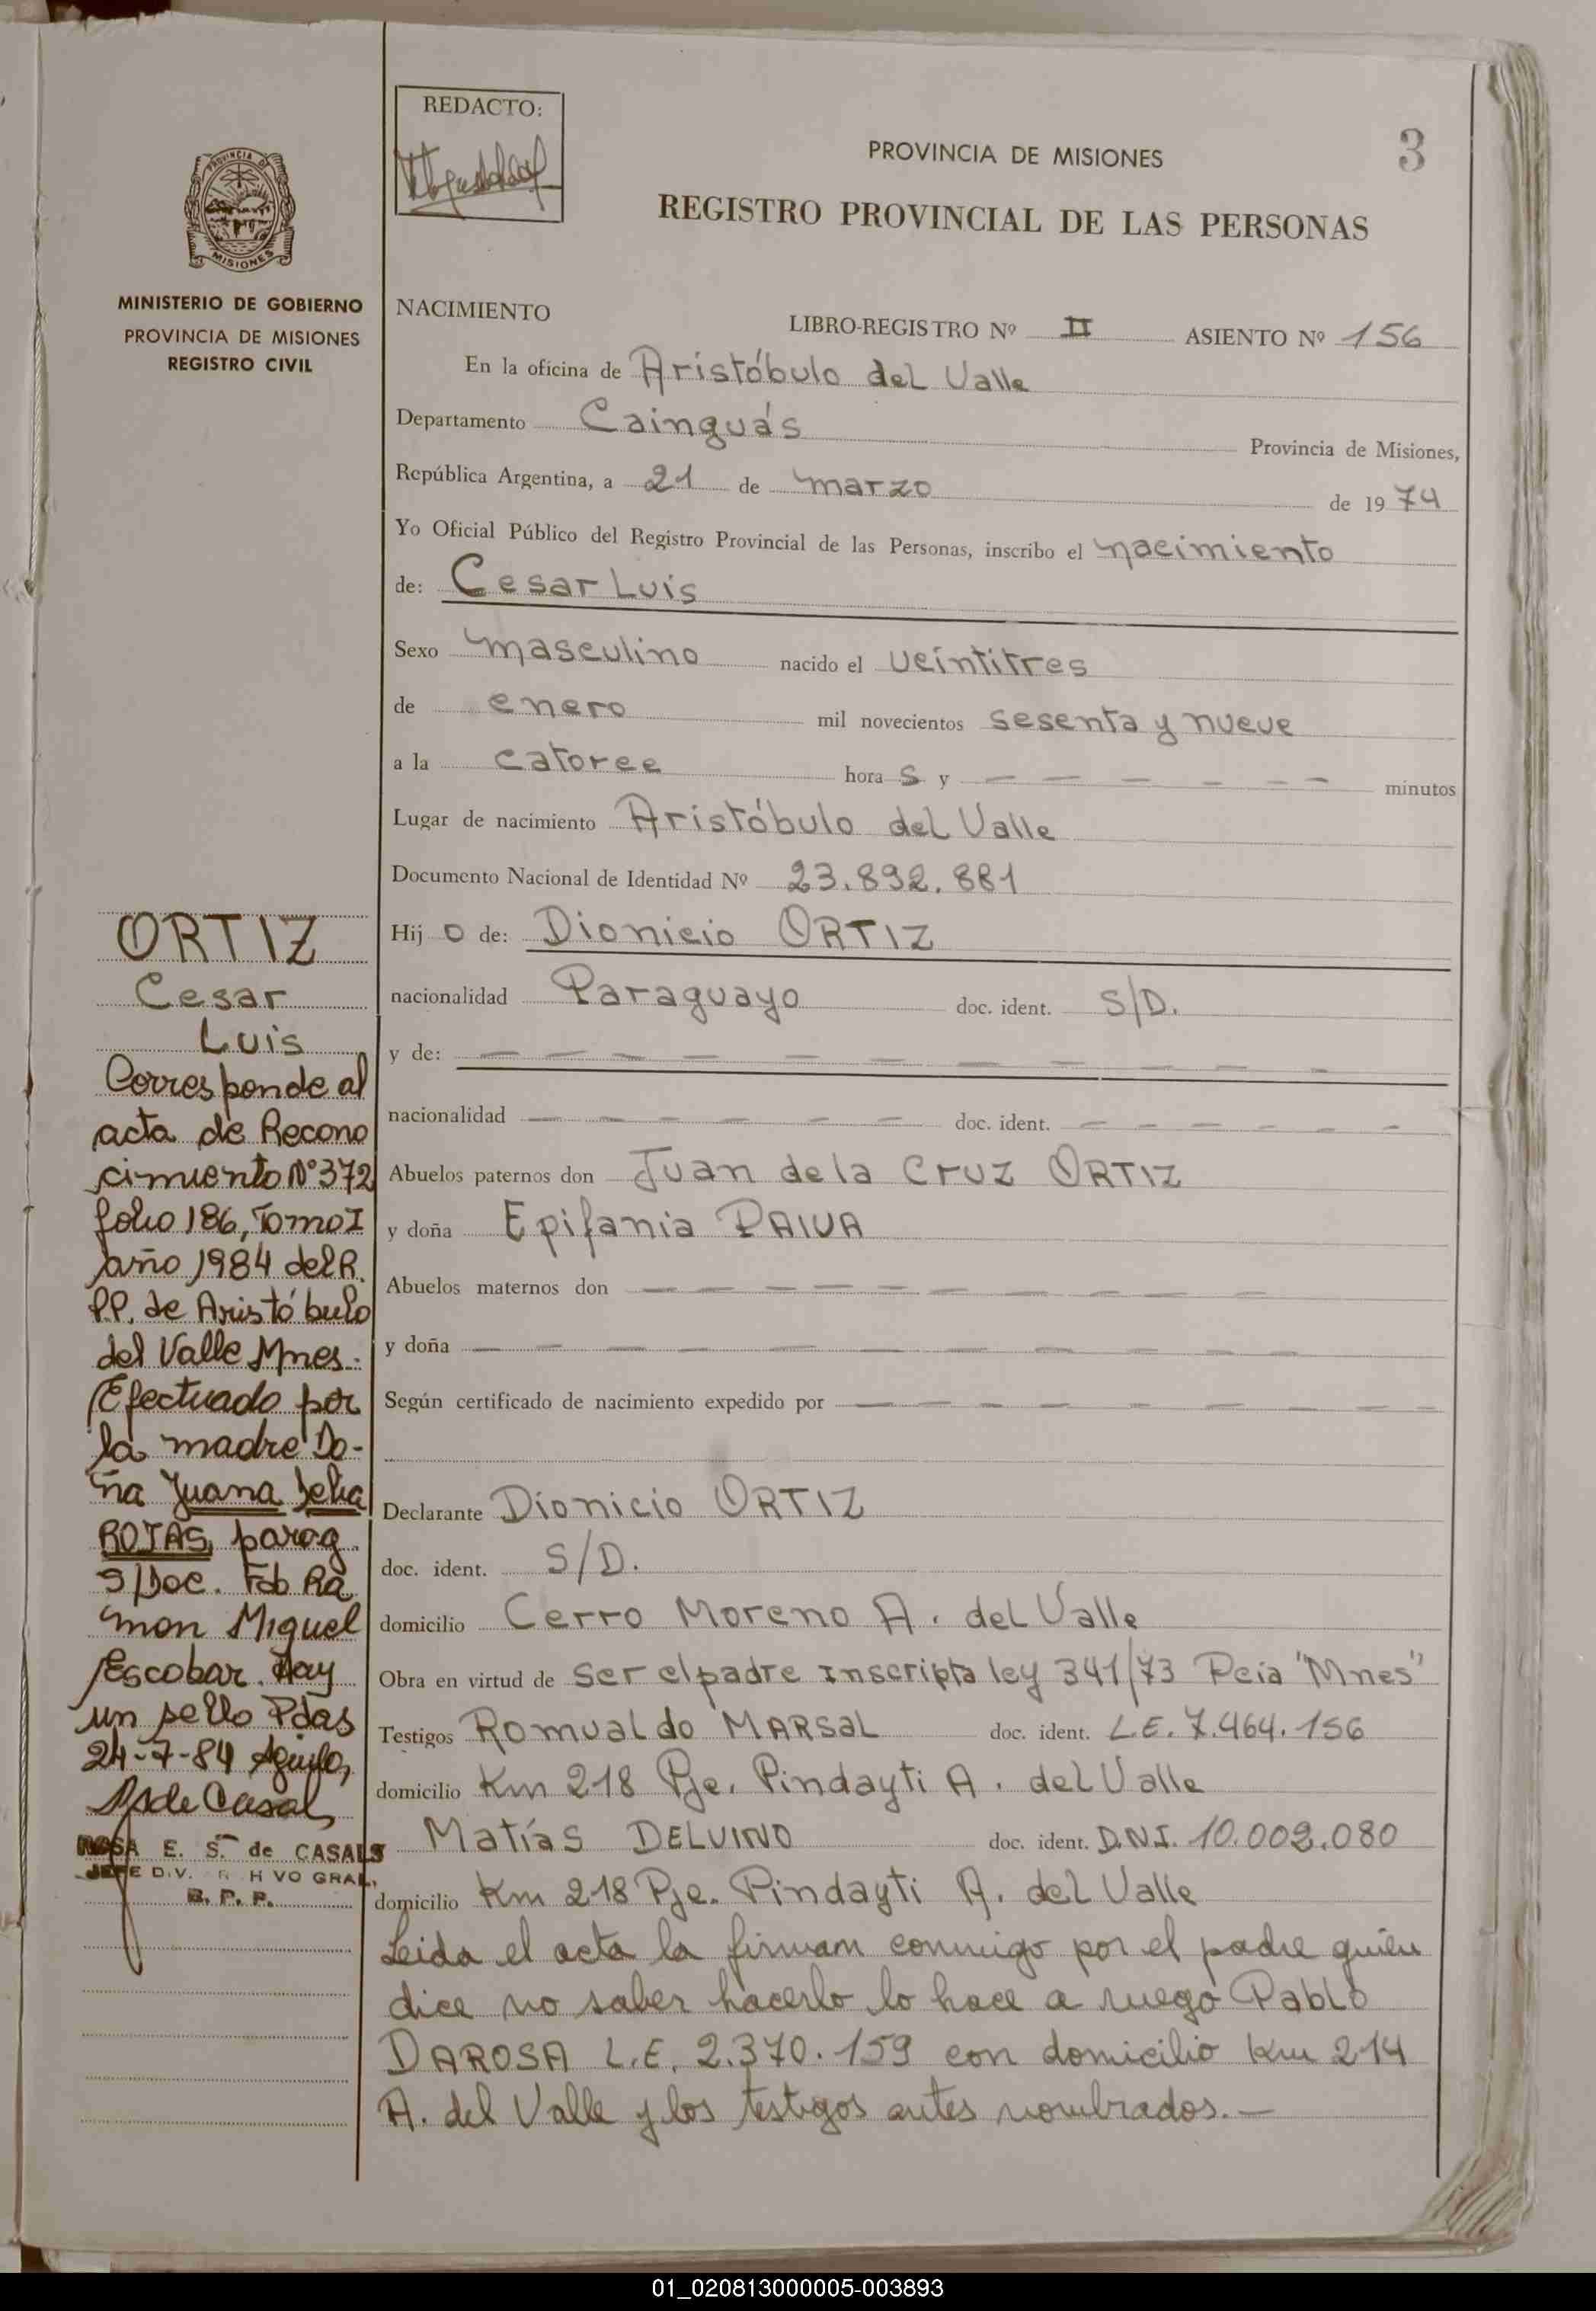 REDACTO:
3
PROVINCIA DE MISIONES
REGISTRO PROVINCIAL DE LAS PERSONAS
PROVINCIA DE
MISIONES
MINISTERIO DE GOBIERNO
PROVINCIA DE MISIONES
REGISTRO CIVIL
NACIMIENTO
LIBRO-REGISTRO Nº II ASIENTO Nº 156
En la oficina de Aristóbulo del Valle
Departamento Cainguás Provincia de Misiones,
República Argentina, a 21 de marzo de 1974
Yo Oficial Público del Registro Provincial de las Personas, inscribo el nacimiento
de: Cesar Luis
Sexo masculino nacido el veintitres
de enero mil novecientos sesenta y nueve
a la catorce hora s y — — — — — — minutos
Lugar de nacimiento Aristóbulo del Valle
Documento Nacional de Identidad Nº 23.892.881
Hij o de: Dionicio ORTIZ
nacionalidad Paraguayo doc. ident. S/D.
y de: — — — — — — — — — —
nacionalidad — — — — — — doc. ident. — — — — — —
Abuelos paternos don Juan de la Cruz ORTIZ
y doña Epifania PAIVA
Abuelos maternos don — — — — — — — — —
y doña — — — — — — — — — —
Según certificado de nacimiento expedido por — — — — — — — —
Declarante Dionicio ORTIZ
doc. ident. S/D.
domicilio Cerro Moreno A. del Valle
Obra en virtud de ser el padre Inscripta ley 341/73 Pcia "Mnes"
Testigos Romualdo MARSAL doc. ident. L.E. 7.464.156
domicilio Km 218 Pje. Pindayti A. del Valle
Matías DELVINO doc. ident. D.N.I. 10.002.080
domicilio Km 218 Pje. Pindayti A. del Valle
Leida el acta la firman conmigo por el padre quien
dice no saber hacerlo lo hace a ruego Pablo
DAROSA L.E. 2.370.159 con domicilio Km 214
A. del Valle y los testigos antes nombrados.—
ORTIZ
Cesar
Luis
Corresponde al
acta de Recono
cimiento Nº 372
folio 186, Tomo I
año 1984 del R.
P.P. de Aristóbulo
del Valle Mnes.
Efectuado por
la madre Do-
ña Juana Delia
ROJAS, parag.
S/Doc. Fdo Ra
mon Miguel
Escobar. Hay
un sello Pdas
24-7-84
ROSA E. S. de CASALS
JEFE DIV. VO GRAL.
R. P. P.
01_020813000005-003893